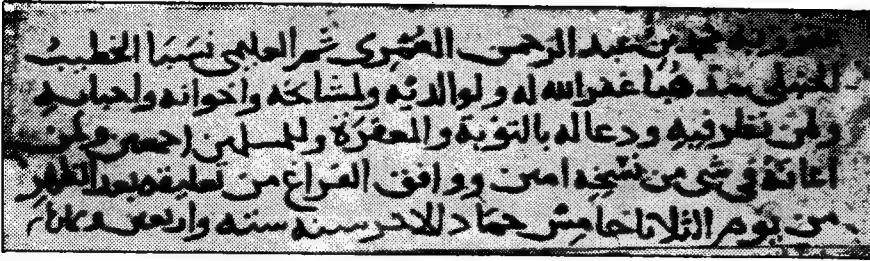 محمد بن عبد الرحمن العمرى ثم العليمى نسبا الخطيب
الحنبلى مذهبا غفر الله له ولوالديه ولمشايخه واخوانه واحبابه
ولمن نظر فيه ودعا له بالتوبة والمغفرة وللمسلمين اجمعين ولمن
اعانه فى شى من نسخه امين ووافق الفراغ من تعليقه بعد الظهر
من يوم الثلاثا خامس جماد للاخر سنه سته واربعين وثمانمام